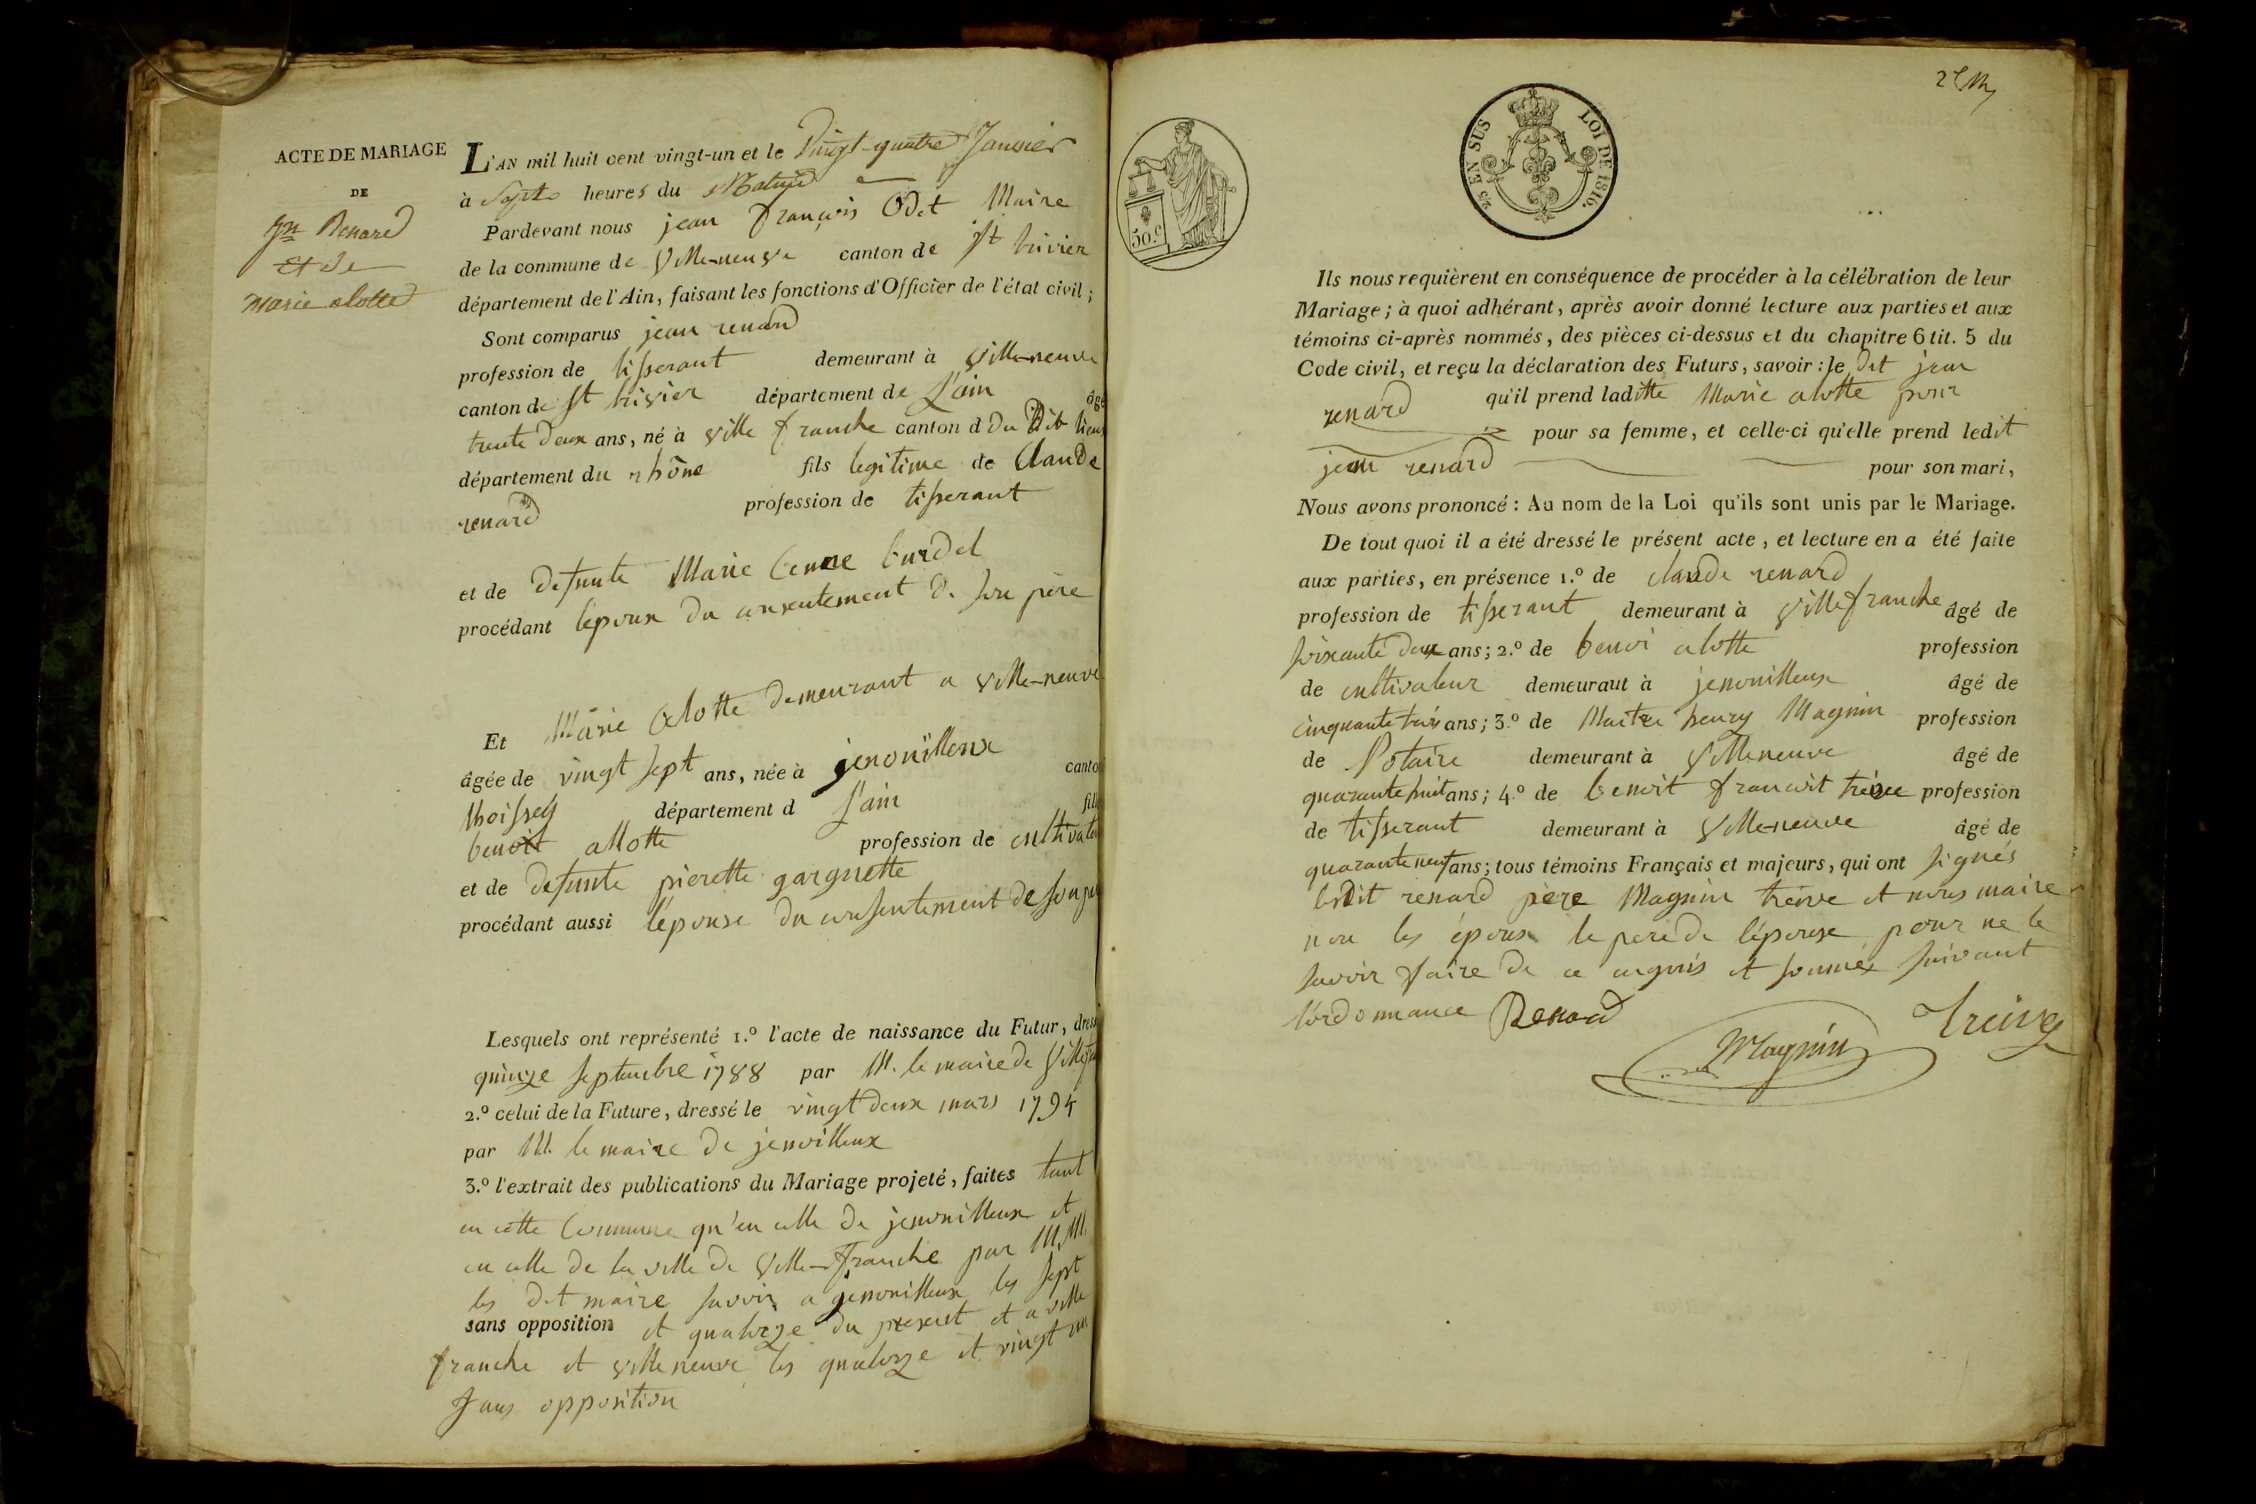 ACTE DE MARIAGE
DE
Jn Renard
Et de
Marie alotte
L'AN mil huit cent vingt-un et le Vingt-quatre Janvier
à Sept heures du Matin
Pardevant nous jean françois Odet Maire
de la commune de Ville-neuve canton de St trivier
département de l'Ain, faisant les fonctions d'Officier de l'état civil;
Sont comparus jean renard
profession de tisserant demeurant à Ville-neuve
canton de St trivier département de L'ain âgé
trente deux ans, né à Ville franche canton d du Dit lieu
département du rhône fils legitime de Claude
renard profession de tisserant
et de defunte Marie burdel
procédant l'époux du consentement de son père
Et Marie Alotte demeurant a Ville-neuve
âgée de vingt sept ans, née à jenouilleux canto
thoissey département d L'ain fill
benoit allotte profession de cultivateu
et de defunte pierette garguette
procédant aussi l'épouse du consentement de son
Lesquels ont représenté 1.º l'acte de naissance du Futur, dress
quinze septembre 1788 par M. le maire de Villefra
2.º celui de la Future, dressé le vingt deux mars 1794
par M. le maire de jenoilleux
3.º l'extrait des publications du Mariage projeté, faites tant
en cette Commune qu'en celle de jenouilleux et
en celle de la ville de Ville-franche par M.M.
les dit maire savoir a jenouilleux les sept
sans opposition et quatorze du present et a ville
franche et Villeneuve les quatorze et vingt un
Sans opposition
50.c
25 EN SUS
LOI DE 1816.
Ils nous requièrent en conséquence de procéder à la célébration de leur
Mariage; à quoi adhérant, après avoir donné lecture aux parties et aux
témoins ci-après nommés, des pièces ci-dessus et du chapitre 6 tit. 5 du
Code civil, et reçu la déclaration des Futurs, savoir: le dit jean
renard qu'il prend laditte Marie alotte pour
pour sa femme, et celle-ci qu'elle prend ledit
jean renard pour son mari,
Nous avons prononcé: Au nom de la Loi qu'ils sont unis par le Mariage.
De tout quoi il a été dressé le présent acte, et lecture en a été faite
aux parties, en présence 1.º de claude renard
profession de tisserant demeurant à Villefranche âgé de
soixante deux ans; 2.º de benoi alotte profession
de cultivateur demeurant à jenouilleux âgé de
cinquante trois ans; 3.º de Maitre henry Magnin profession
de Notaire demeurant à Villeneuve âgé de
quarante huit ans; 4.º de benoit francoit treive profession
de tisserant demeurant à Villeneuve âgé de
quarante neuf ans; tous témoins Français et majeurs, qui ont signés
ledit renard père Magnin treive et nous maire
non les époux le pere de l'épouse pour ne le
savoir faire de ce enquis et sommés suivant
l'ordonnance Renard
Magnin
Treive